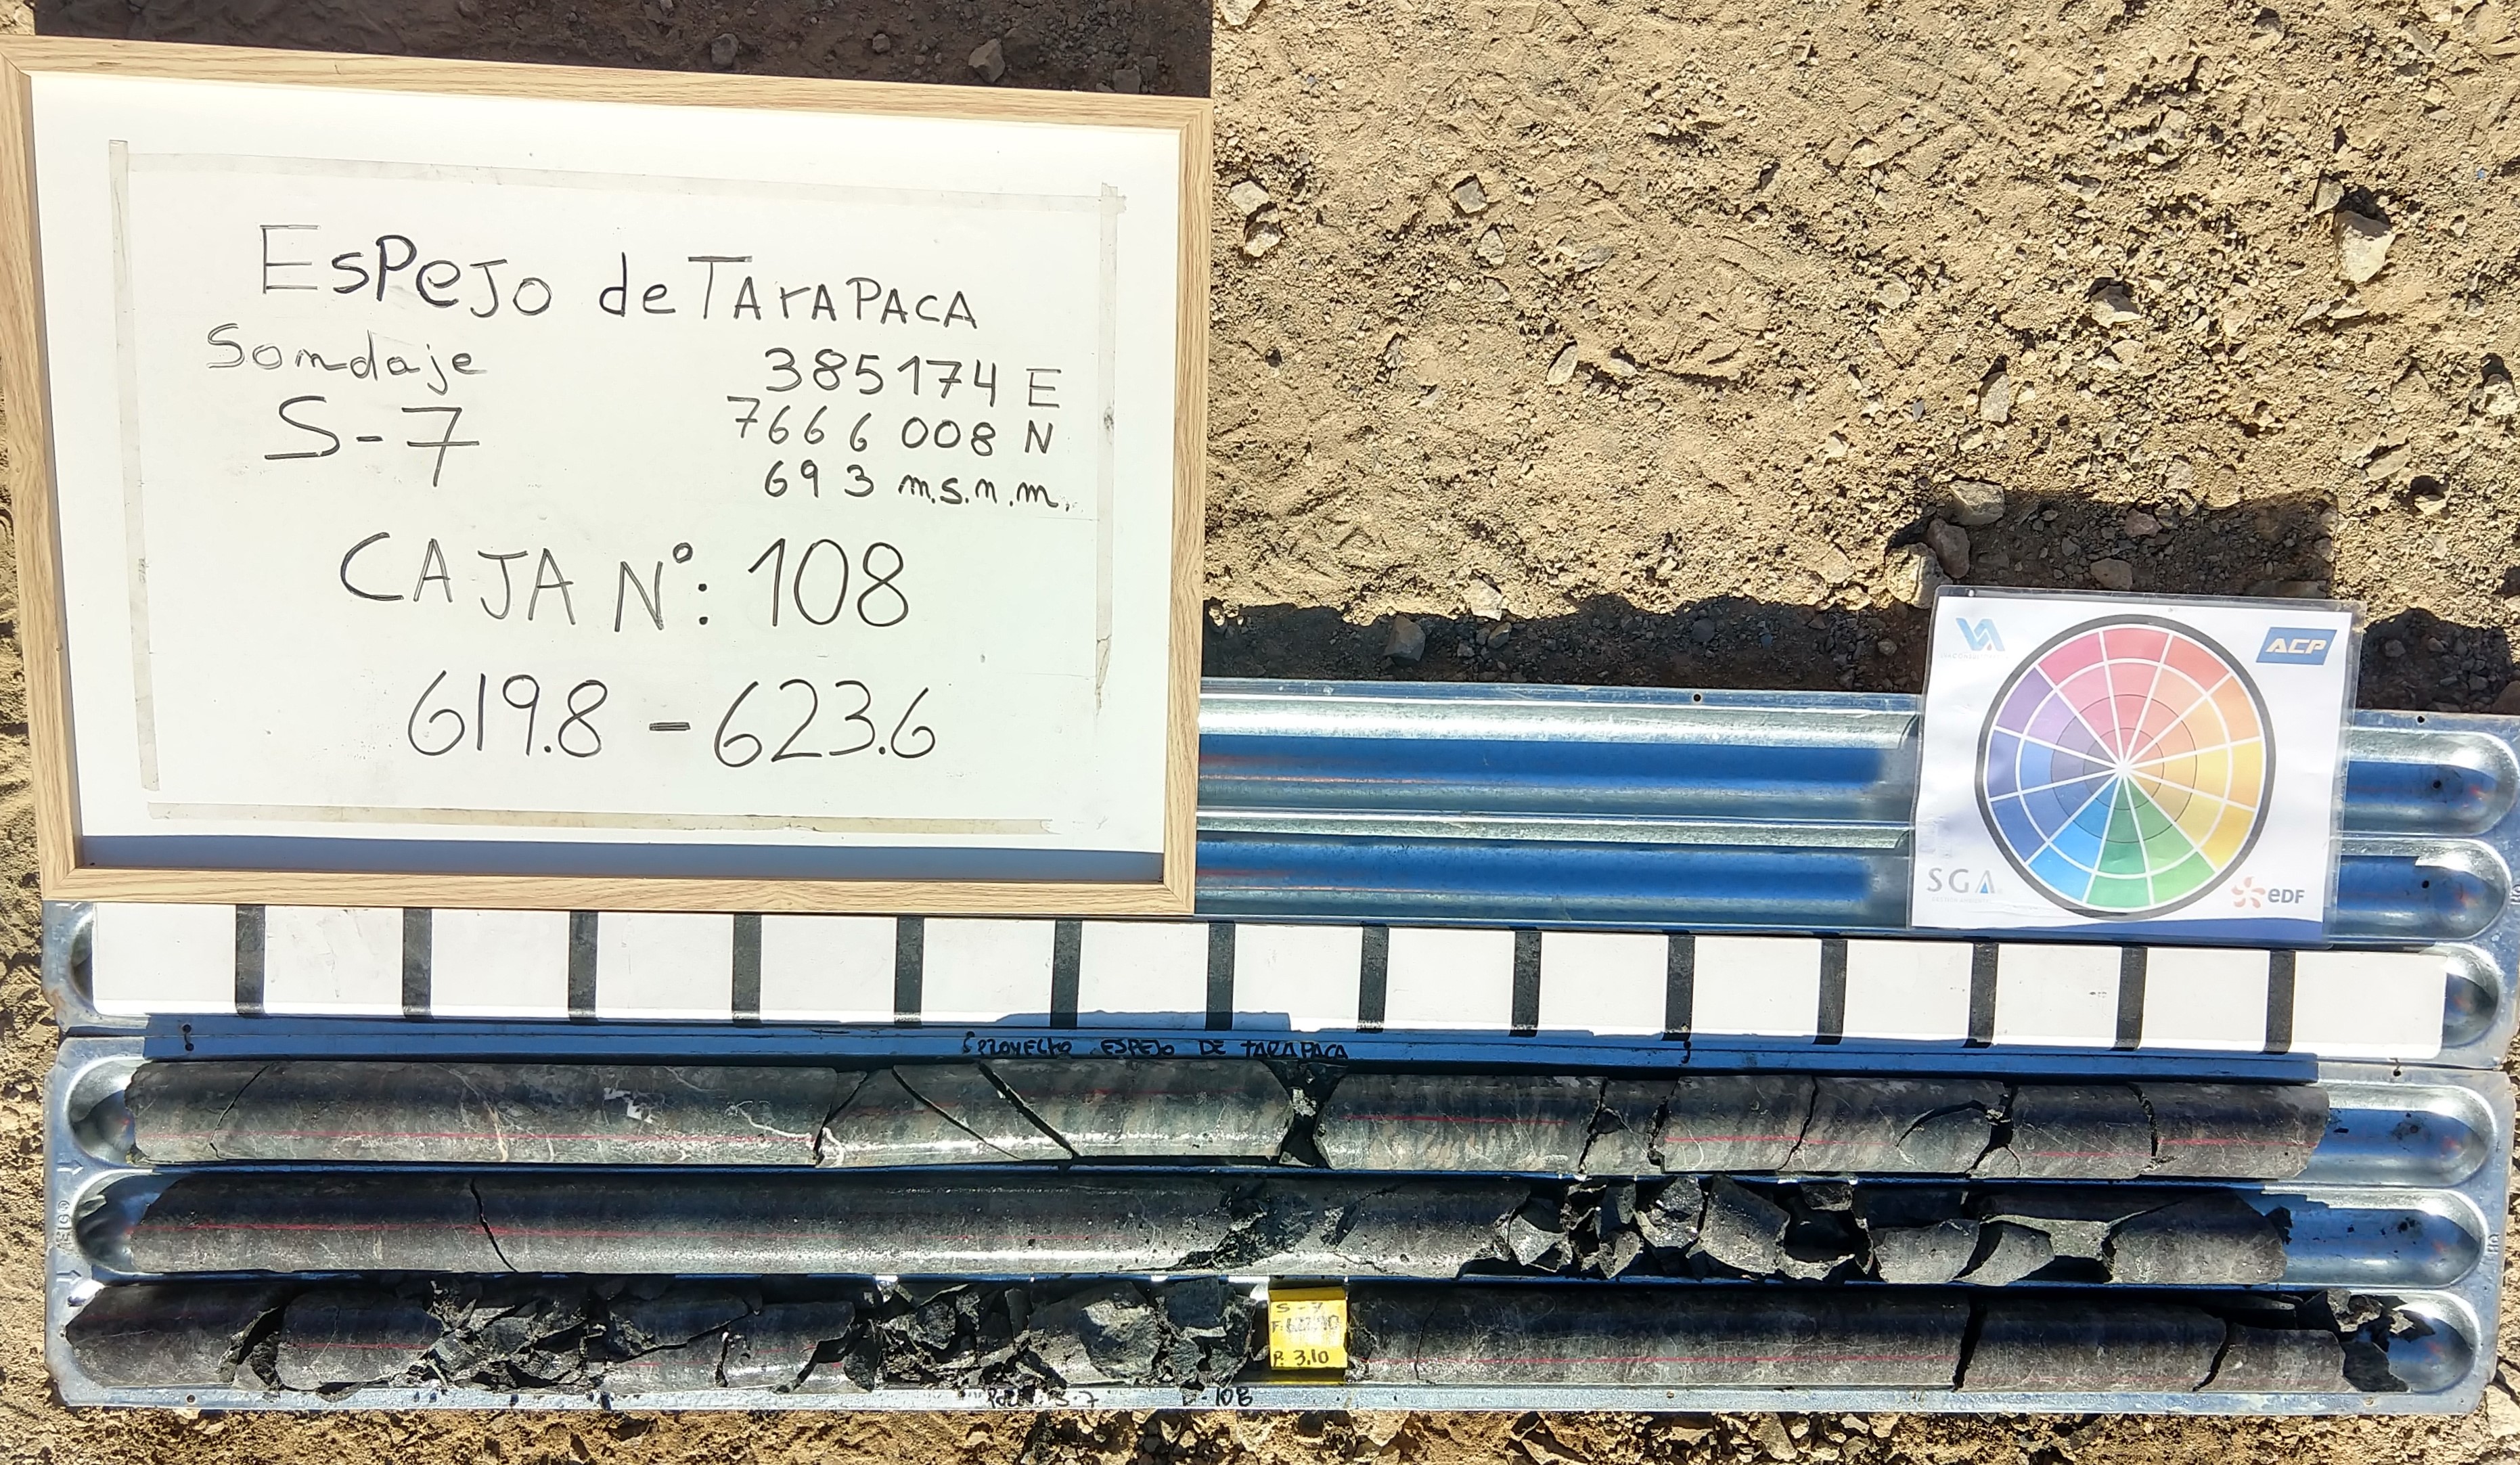 EsPeJo de TArAPACA
Sondaje
385174 E
S-7
7666008 N
693 m.s.n.m.
CAJA N°: 108
619.8 - 623.6
ACP
SGA
eDF
PROYECTO ESPEJO DE TARAPACA
S-7
P: 3.10
S-7
108